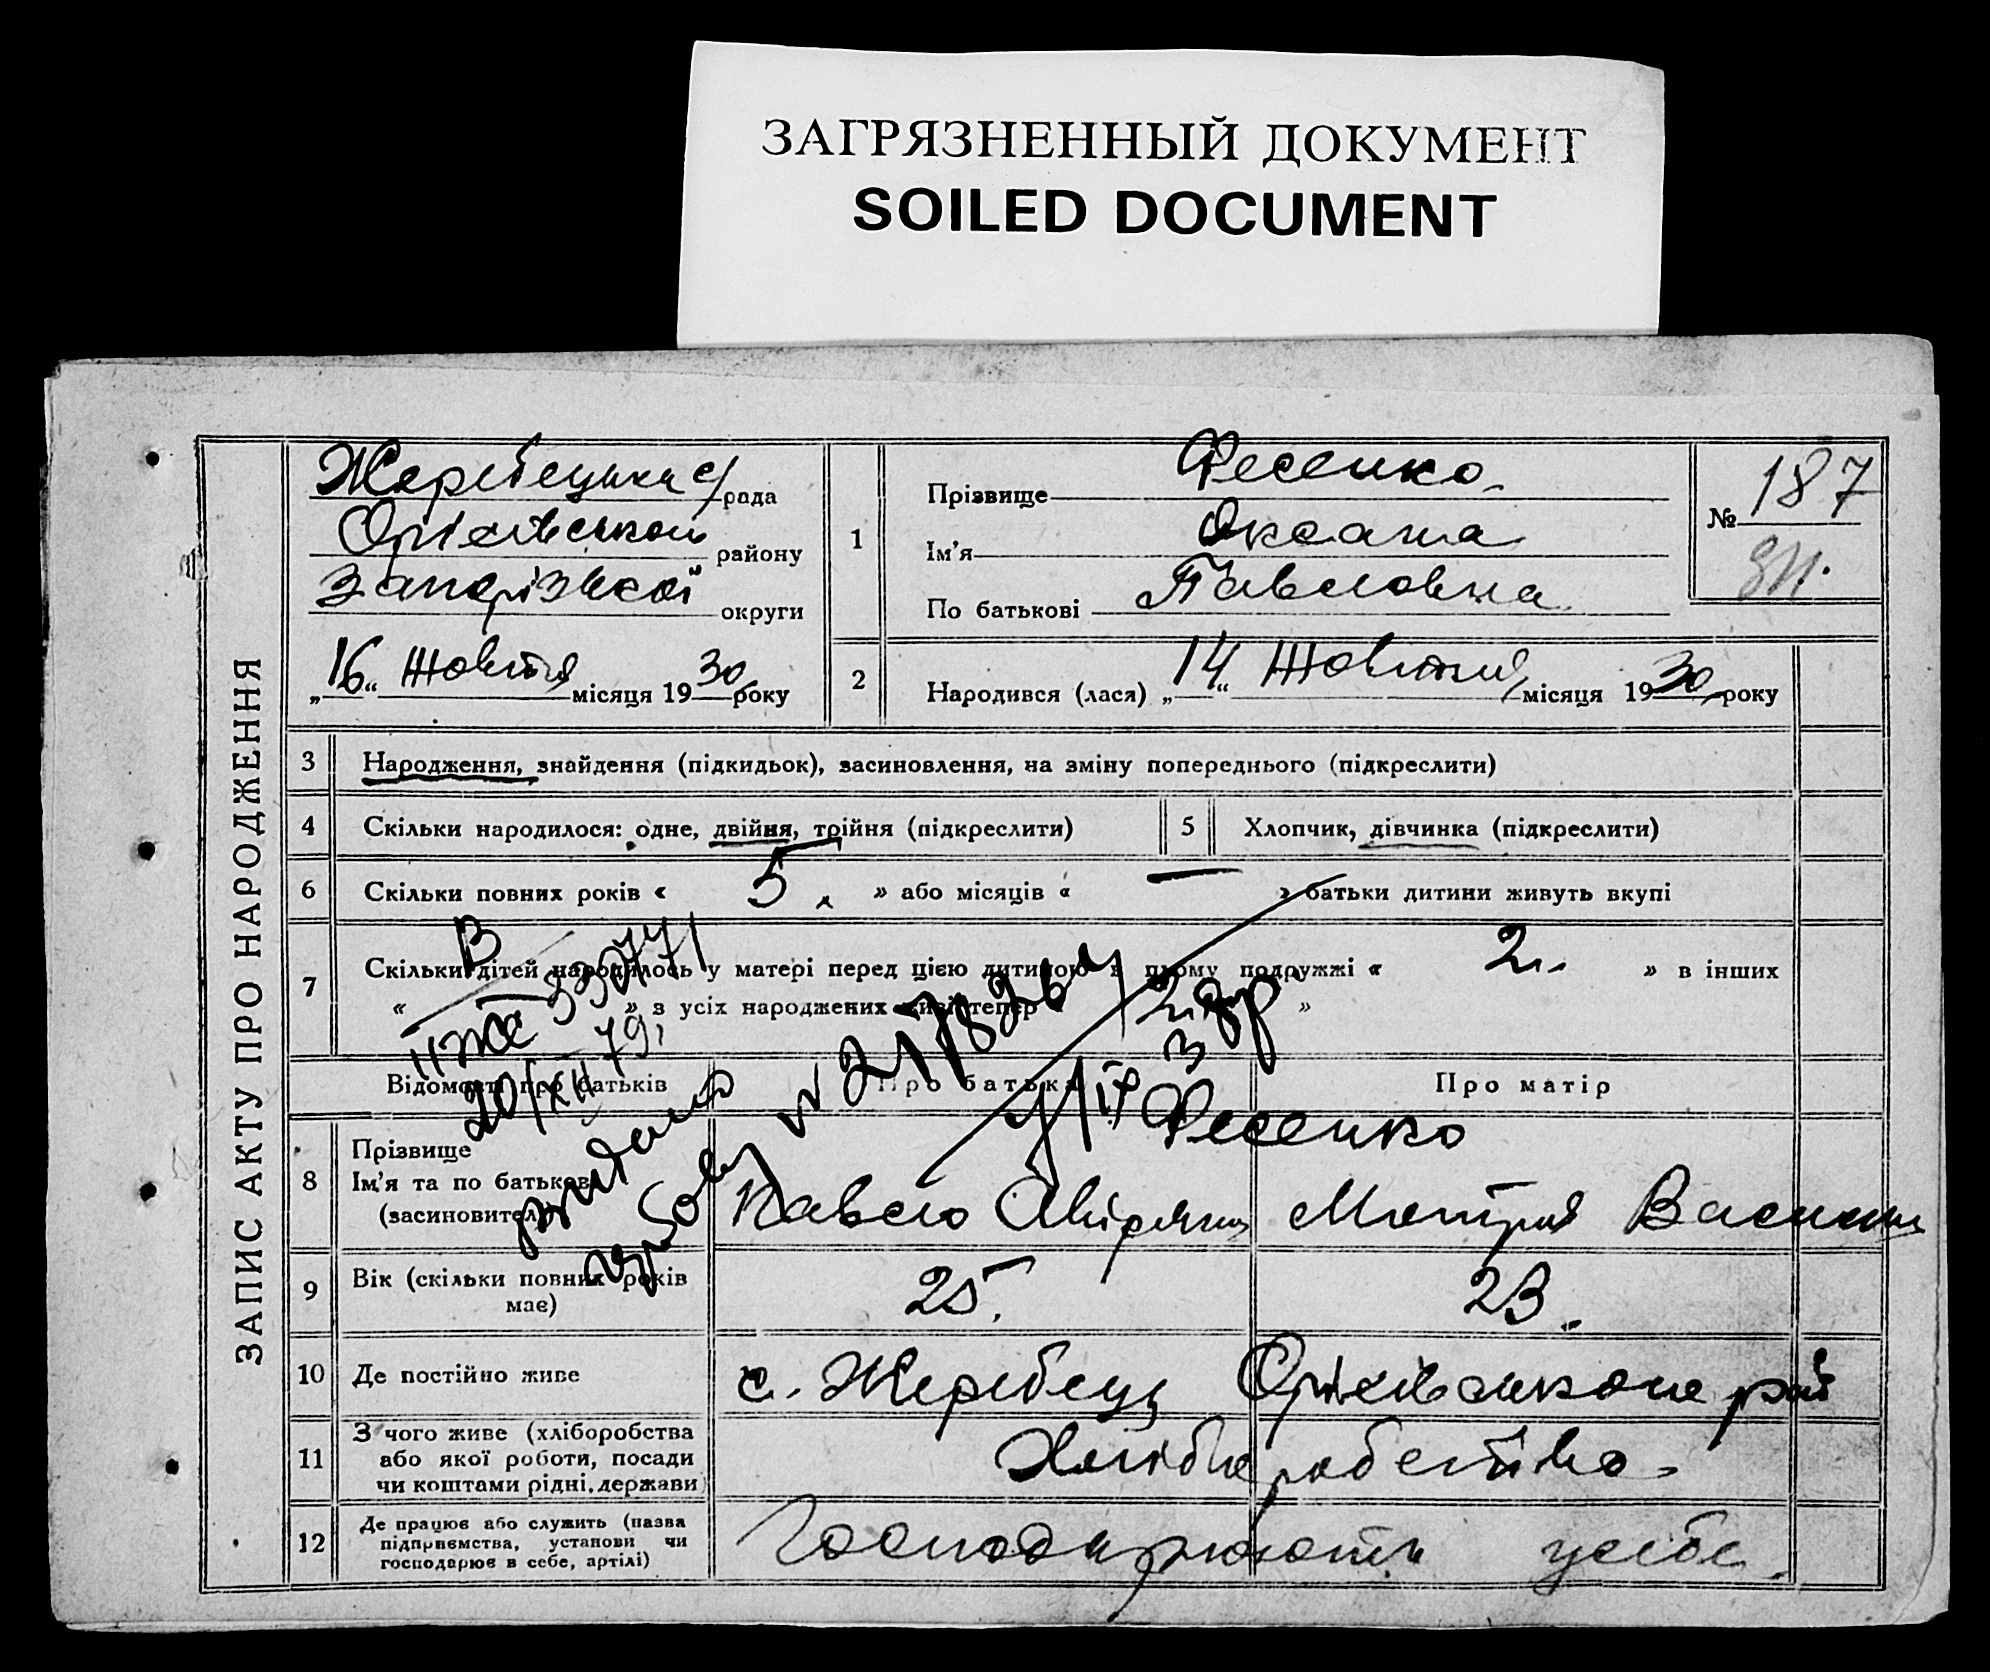 ЗАГРЯЗНЕННЫЙ ДОКУМЕНТ
SOILED DOCUMENT
ЗАПИС АКТУ ПРО НАРОДЖЕННЯ
Жеребецька с/рада
Оріхівської району
Запорізької округи
„16“ Жовтня місяця 1930 року
1
Прізвище Фесенко
Ім’я Оксана
По батькові Павловна
№ 187
2
Народився (лася) „14“ Жовтня місяця 1930 року
3 Народження, знайдення (підкидьок), засиновлення, на зміну попереднього (підкреслити)
4 Скільки народилося: одне, двійня, трійня (підкреслити)
5 Хлопчик, дівчинка (підкреслити)
6 Скільки повних років « 5. » або місяців « — » батьки дитини живуть вкупі
7 Скільки дітей народилось у матері перед цією дитиною в цьому подружжі « 2. » в інших
« — » з усіх народжених живі тепер « 2 »
Відомості про батьків
Про батька
Про матір
8 Прізвище
Ім’я та по батькові
(засиновителі)
Фесенко
Павело
Мотрия
9 Вік (скільки повних років
має)
25.
23.
10 Де постійно живе
с. Жеребець Оріхівського рай
11 З чого живе (хліборобства
або якої роботи, посади
чи коштами рідні, держави)
Хліборобство
12 Де працює або служить (назва
підприємства, установи чи
господарює в себе, артілі)
Господарюють усебе
20/XII 79